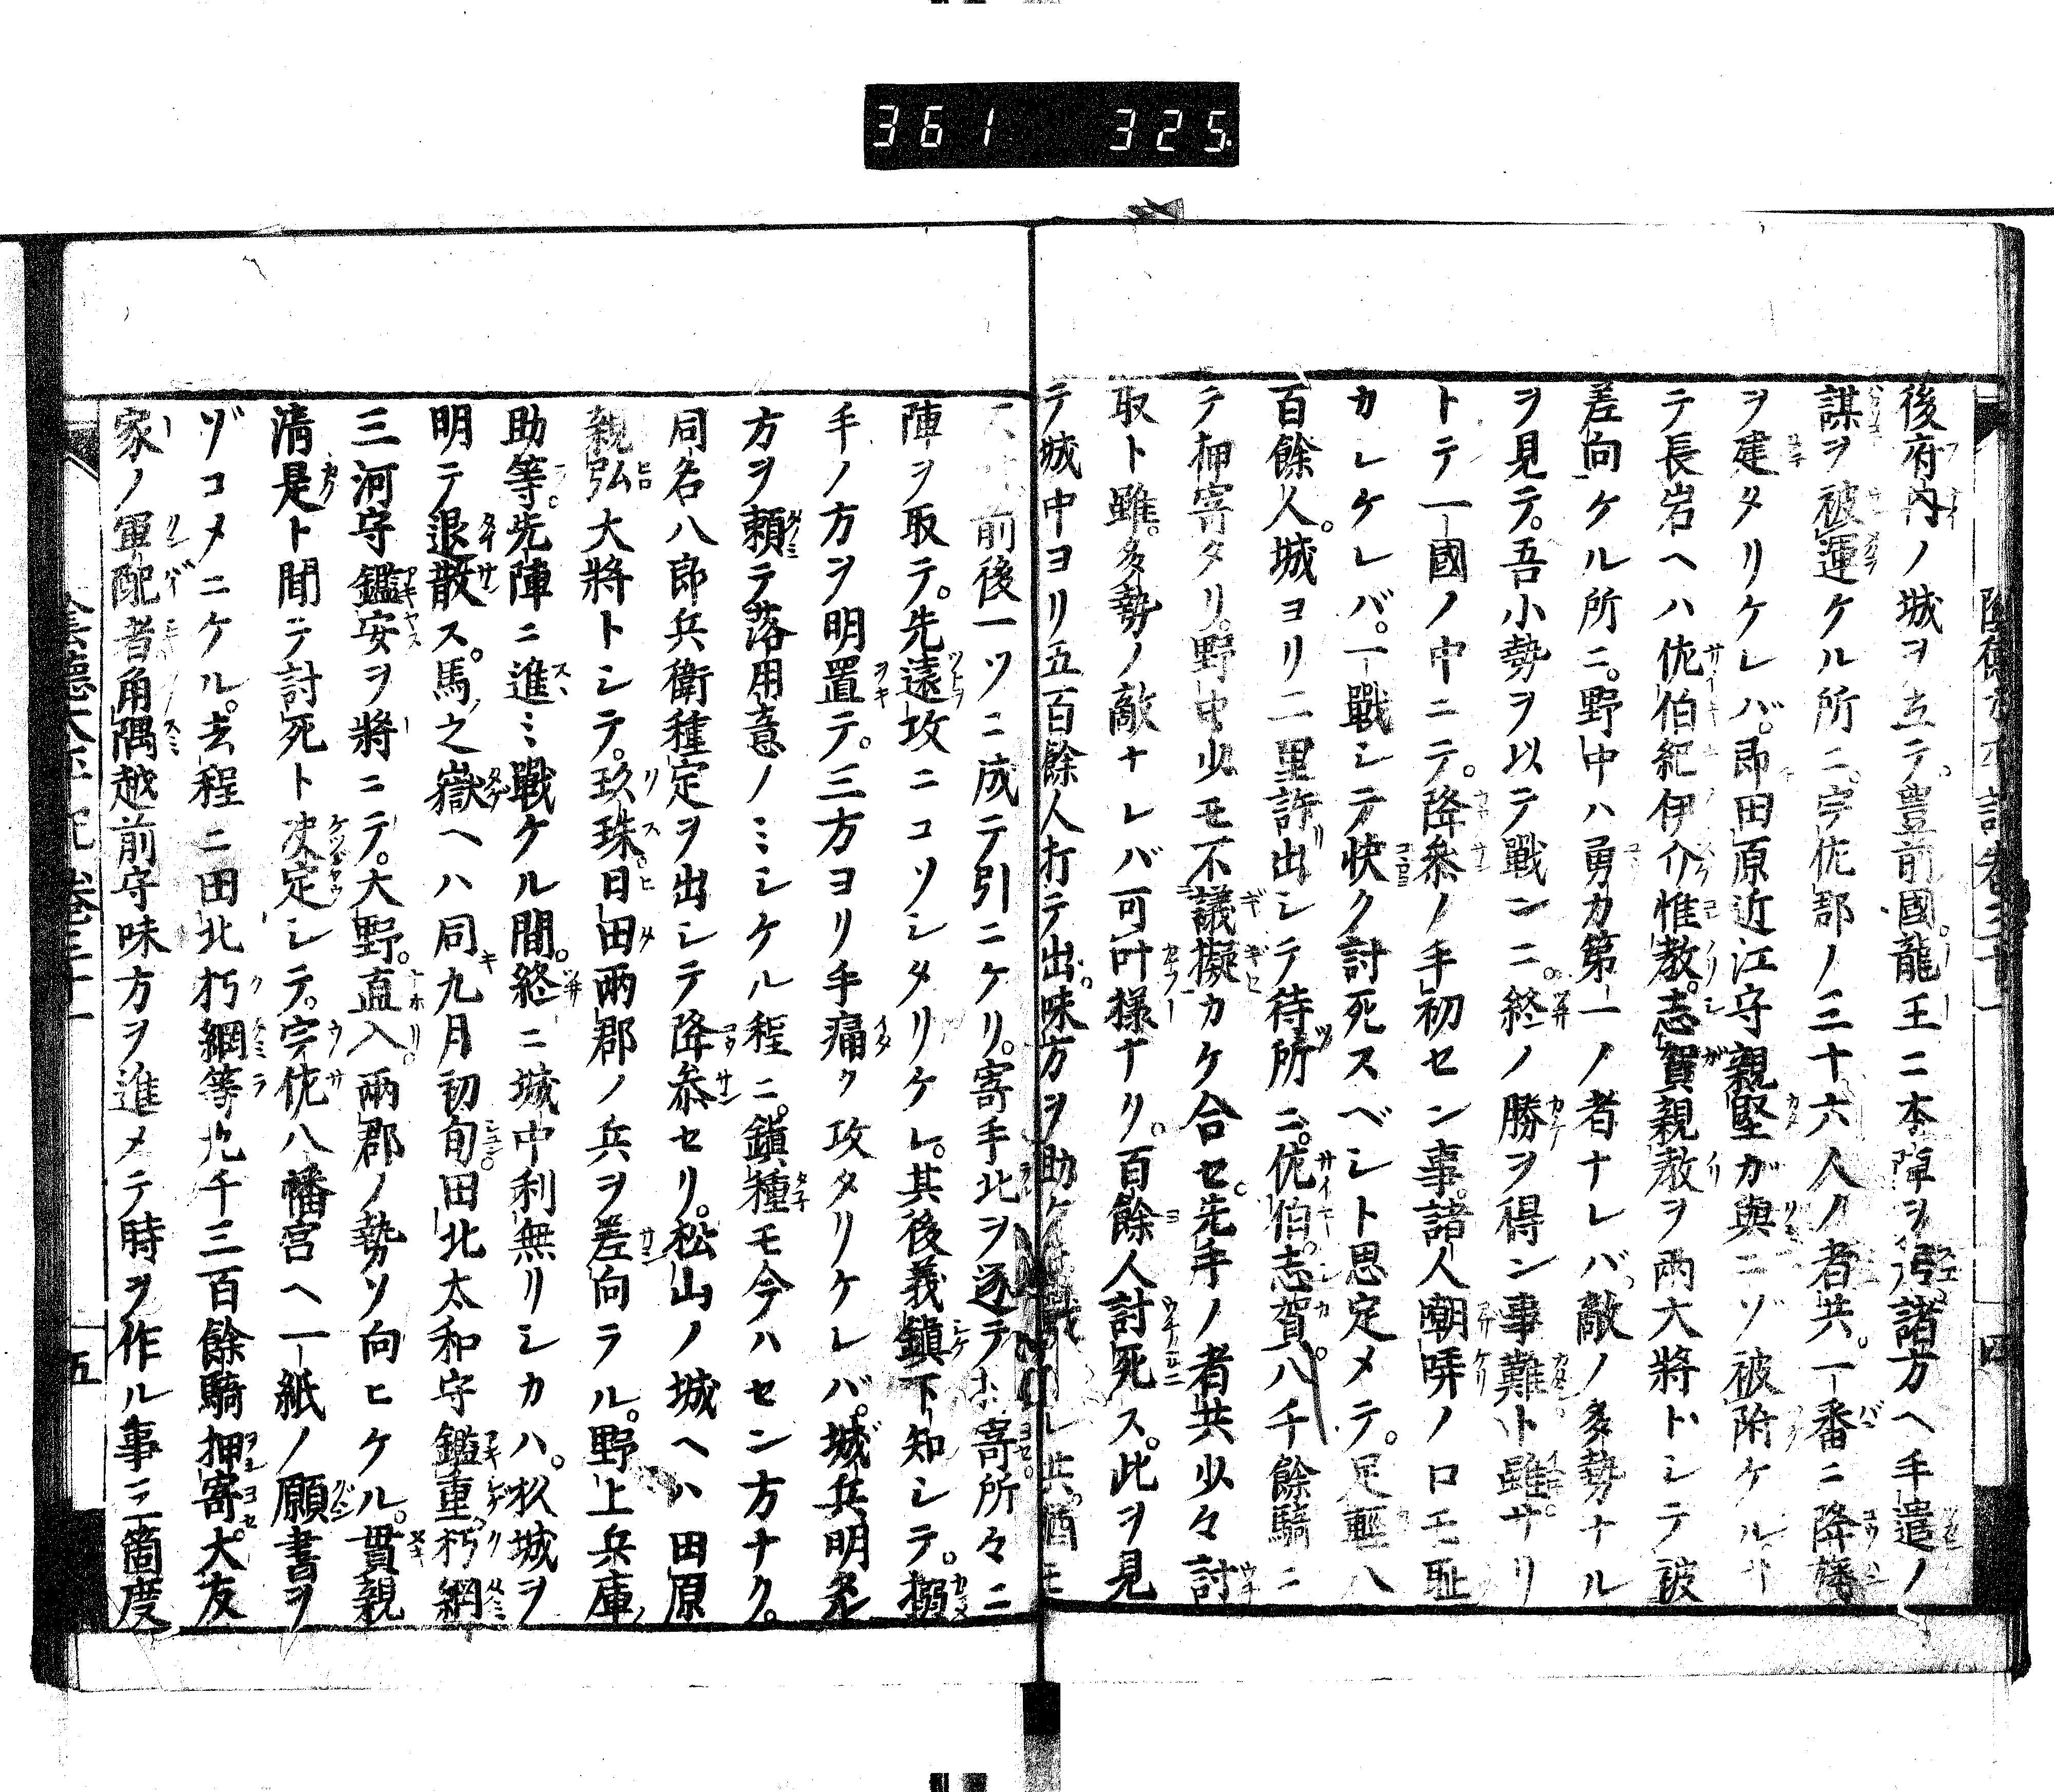 361 325
後府内ノ城ヲ立テ。豊前國。龍王ニ本陣ヲ 諸方ヘ手遣ノ
謀ヲ被運ケル所ニ。宇佐郡ノ三十六人ノ者共。一番ニ降旛
ヲ建タリケレバ。即田原近江守親堅ガ與ニゾ被附ケル
テ長岩ヘハ佐伯紀伊介惟教。志賀親教ヲ兩大將トシテ被
差向ケル所ニ。野中ハ勇力第一ノ者ナレバ。敵ノ多勢ナル
ヲ見テ。吾小勢ヲ以テ戰ンニ。終ノ勝ヲ得ン事難ト雖。サリ
トテ一國ノ中ニテ。降參ノ手初セン事。諸人嘲哢ノ口モ耻
カレケレバ。一戰シテ快ク討死スベシト思定メテ。足輕八
百餘人。城ヨリ二里許出シテ待所ニ。佐伯。志賀。八千餘騎ニ
テ押寄タリ。野中少モ不議擬カケ合セ。先手ノ者共少々討
取ト雖。多勢ノ敵ナレバ可叶樣ナリ。百餘人討死ス。此ヲ見
テ城中ヨリ五百餘人打テ出。味方ヲ助ケ 共。
前後一ツニ成テ引ニケリ。寄手北ヲ逐テ 寄所々ニ
陣ヲ取テ。先遠攻ニコソシタリケレ。其後義鎭下知シテ。搦
手ノ方ヲ明置テ。三方ヨリ手痛ク攻タリケレバ。城兵明タル
方ヲ頼テ落用意ノミシケル程ニ。鎭種モ今ハセン方ナク。
同名八郎兵衛種定ヲ出シテ降參セリ。松山ノ城ヘハ田原
親弘大將トシテ。玖珠。日田兩郡ノ兵ヲ差向ラル。野上兵庫
助等。先陣ニ進ミ戰ケル間。終ニ城中利無リシカハ。杦城ヲ
明テ退散ス。馬之嶽ヘハ同九月初旬。田北太和守鑑重。朽網
三河守鑑安ヲ將ニテ。大野。直入。兩郡ノ勢ソ向ヒケル。貫親
清是ト聞テ討死ト决定シテ。宇佐八幡宮ヘ一紙ノ願書ヲ
ゾコメニケル。去程ニ田北朽網等九千三百餘騎押寄。大友
家ノ軍配者角隅越前守味方ヲ進メテ時ヲ作ル事三箇度
陰德太平記卷三十一 五